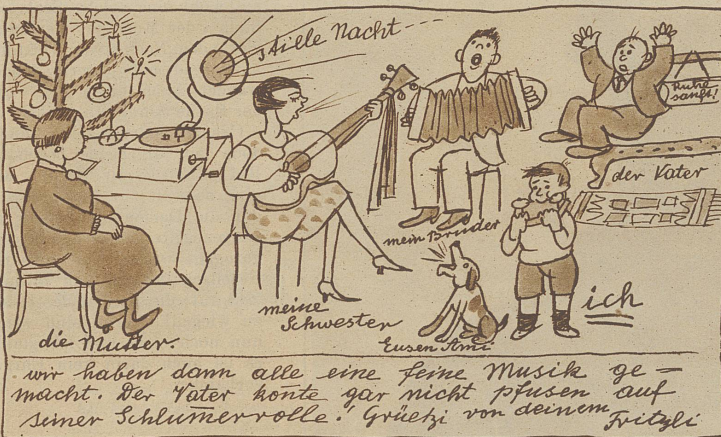 stille Nacht---
Ruhe
sanft!
der Vater
mein Bruder
ich
meine
Schwester
die Mutter.
Eusen Ami
wir haben dann alle eine feine Musik ge=
macht. Der Vater kon̄te gar nicht pfusen auf
seiner Schlum̄errolle! Grüetzi von deinem
Fritzli